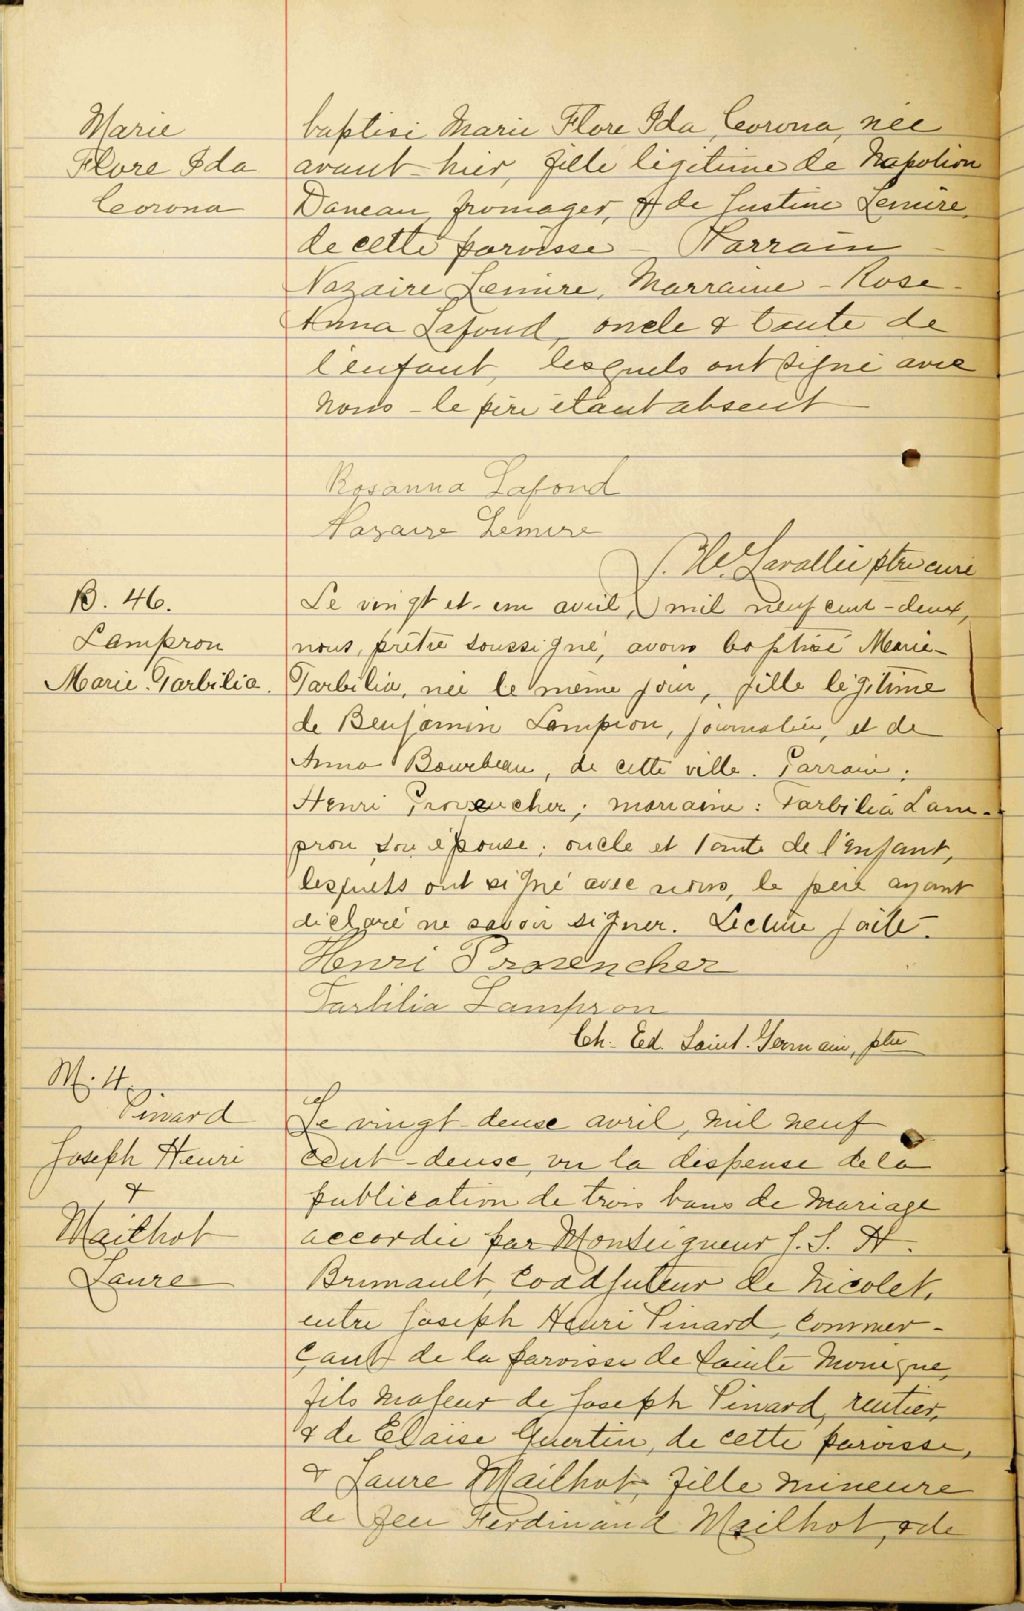 Marie
Flore Ida
Corona
baptisé Marie Flore Ida Corona, née
avant-hier, fille légitime de Napoléon
Daneau, fromager, & de Justine Lemire,
de cette paroisse - Parrain -
Nazaire Lemire, Marraine - Rose-
Anna Lafond, oncle & tante de
l'enfant, lesquels ont signé avec
nous - le père étant absent
Rosanna Lafond
Nazaire Lemire
J. He. Lavallée ptre curé
B. 46.
Lampron
Marie-Tarbilia.
Le vingt et-un avril, mil neuf cent-deux,
nous, prêtre soussigné, avons baptisé Marie-
Tarbilia, née le même jour, fille légitime
de Benjamin Lampron, journalier, et de
Anna Bourbeau, de cette ville. Parrain:
Henri Provencher; marraine: Tarbilia Lam-
pron son épouse; oncle et tante de l'enfant,
lesquels ont signé avec nous, le père ayant
déclaré ne savoir signer. Lecture faite.
Henri Provencher
Tarbilia Lampron
Ch. Ed. Saint-Germain, ptre
M. 4.
Pinard
Joseph Henri
&
Mailhot
Laure
Le vingt-deux avril, mil neuf
cent-deux, vu la dispense de la
publication de trois bans de mariage
accordée par Monseigneur J. S. H.
Brunault, Coadjuteur de Nicolet,
entre Joseph Henri Pinard, commer-
çant de la paroisse de Sainte Monique,
fils majeur de Joseph Pinard, rentier,
& de Elaïse Guertin, de cette paroisse,
& Laure Mailhot, fille mineure
de feu Ferdinand Mailhot, & de